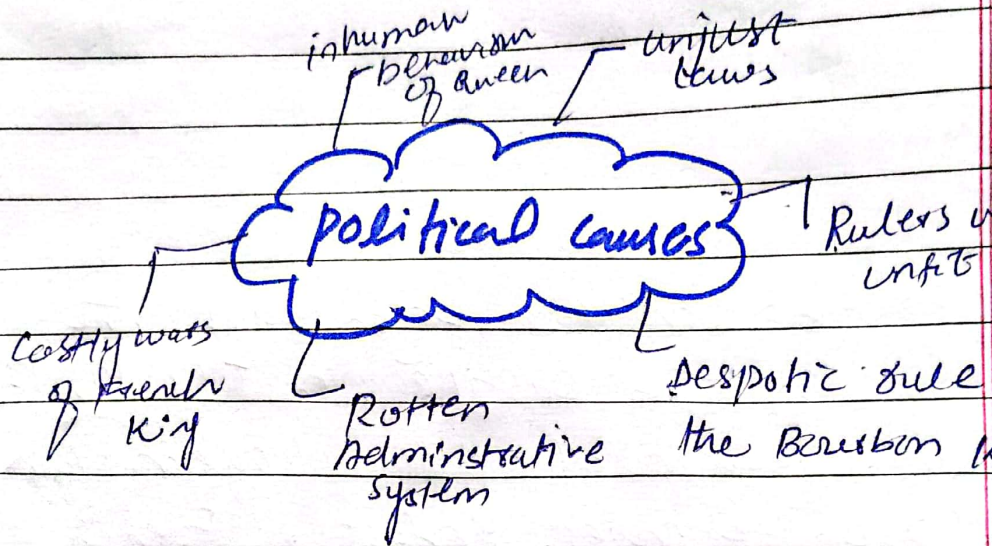 inhuman
behaviour
of Queen
unjust
laws
political causes
Rulers
unfit
Costly wars
of French
King
Rotten
Adminstrative
system
Despotic rule
the Bourbon